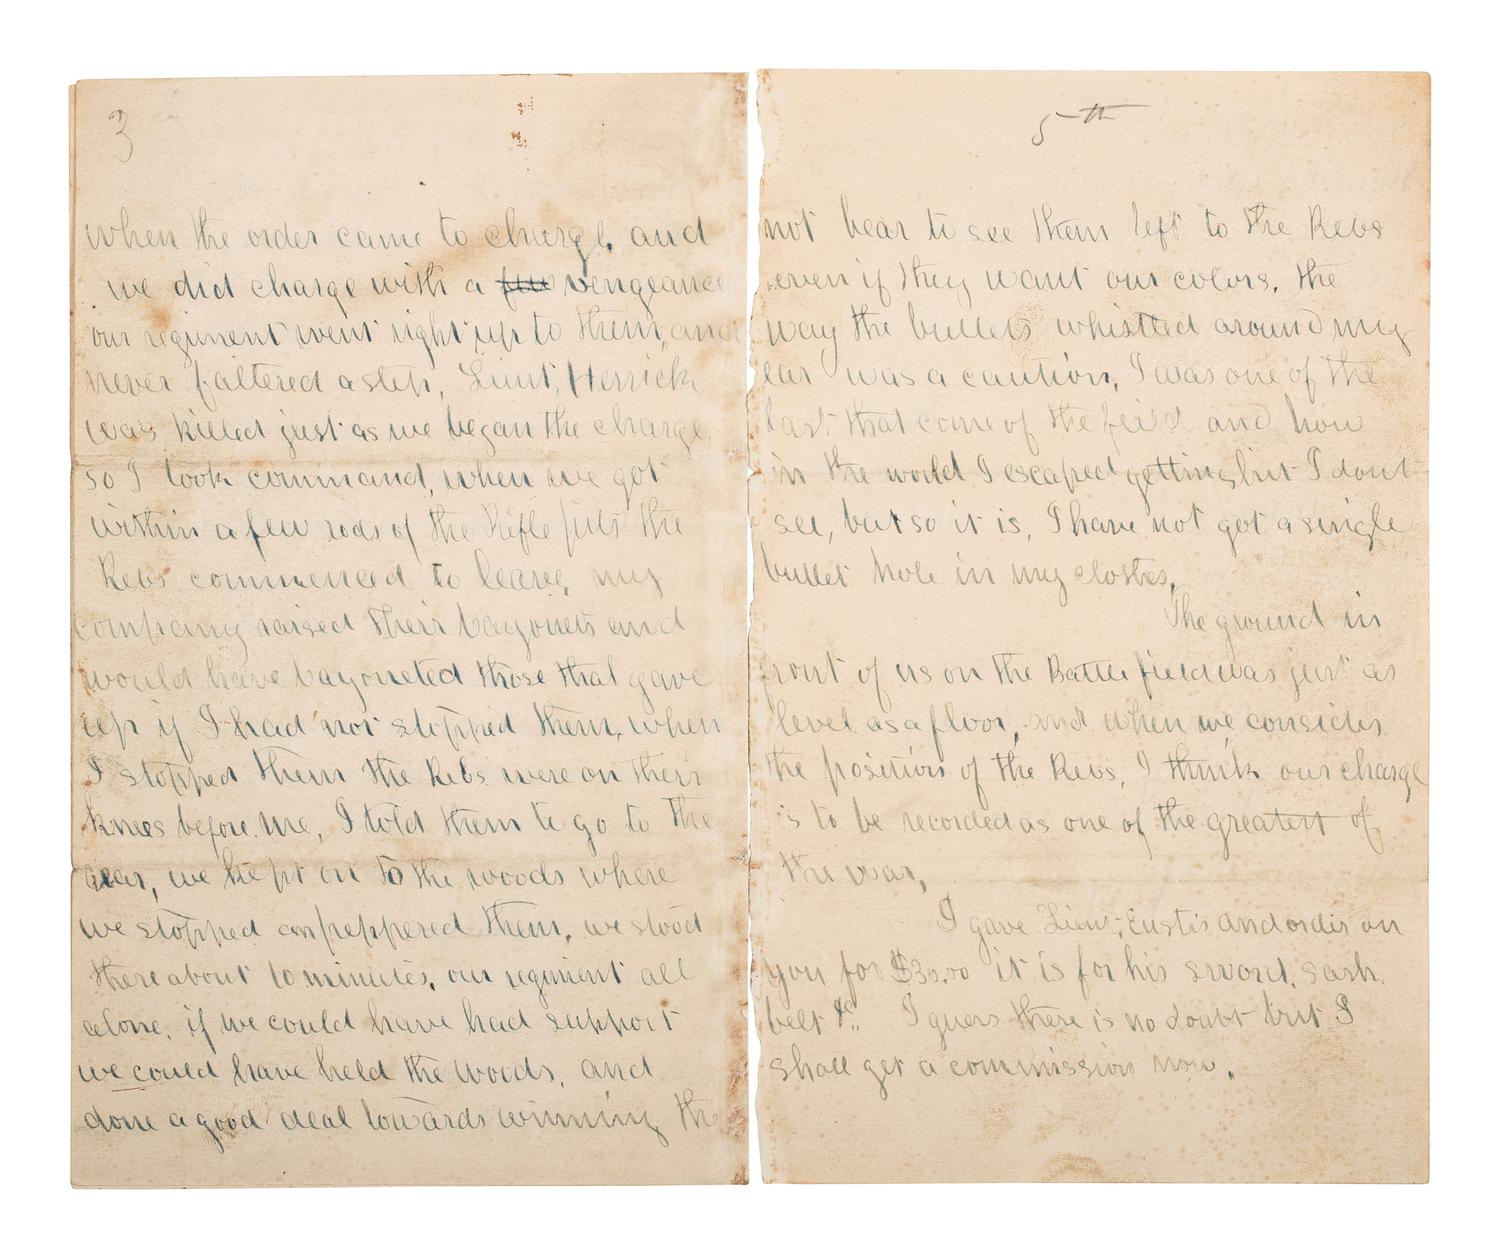 3
when the order came to charge, and
we did charge with a few vengeance
our regiment went right up to them, and
never faltered a step, Lieut, Herrick
was killed just as we began the charge
so I took command, when we got
within a few rods of the Rifle pits the
Rebs commenced to leave, my
company raised their bayonets and
would have bayoneted those that gave
up if I had not stopped them, when
I stopped them the Rebs were on their
knees before me, I told them to go to the
rear, we kept on to the woods where
we stopped an peppered them, we stood
there about 10 minutes, our regiment all
alone, if we could have had support
we could have held the woods, and
done a good deal towards winning the
5th
not bear to see them left to the Rebs
even if they want our colors. the
way the bullets whistled around my
ear was a caution, I was one of the
last that come of the feild and how
in the world I escaped getting hit I dont
see, but so it is, I have not got a single
bullet hole in my clothes,
The ground in
front of us on the Battle field was just as
level as a floor, and when we consider
the position of the Rebs, I think our charge
is to be recorded as one of the greatest of
the war,
I gave Lieut, Eustis and order on
you for $30.00 it is for his sword, sash,
belt &c. I guess there is no doubt but I
shall get a commission now.